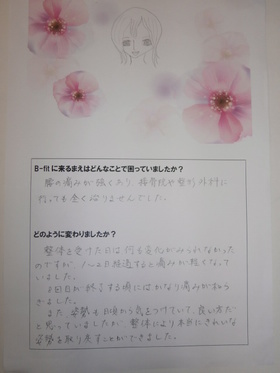 B-fitに来るまえはどんなことで困っていましたか？
腰の痛みが強くあり、接骨院や整形外科に
行っても全くなおりませんでした。
どのように変わりましたか？
整体を受けた日は何も変化がみられなかった
のですが、1〜2日経過すると痛みが軽くなって
いました。
3回目が終了する頃にはかなり痛みが和らぎ
ました。
また、姿勢も日頃から気をつけていて、良い方だ
と思っていましたが、整体により本当にきれいな
姿勢を取り戻すことができました。